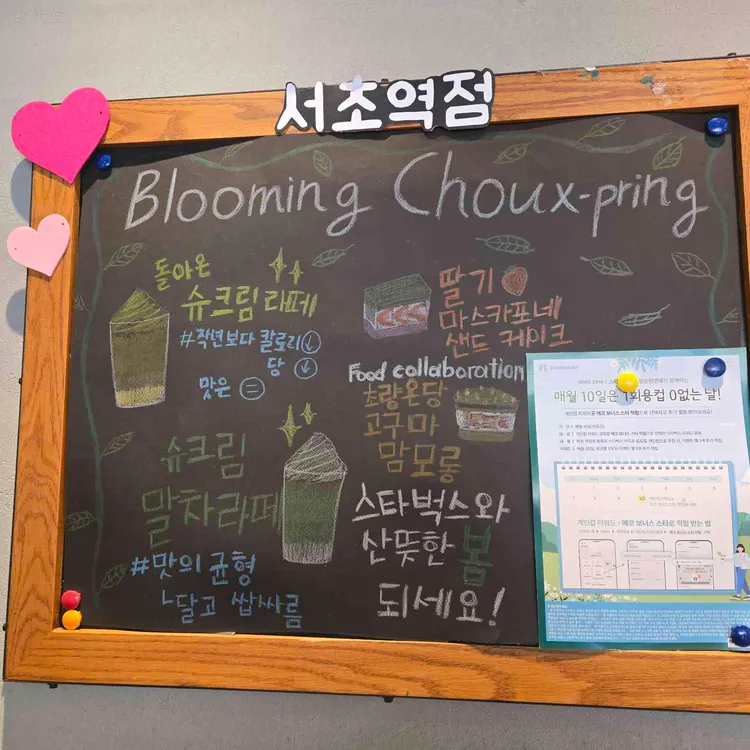 서초역점
Blooming Choux-pring
돌아온
슈크림 라떼
#작년보다 칼로리↓
당 ↓
맛은 =
슈크림
말차라떼
#맛의 균형
ㄴ달고 쌉싸름
딸기
마스카포네
샌드 케이크
Food collaboration
초량온당
고구마
맘모롱
스타벅스와
산뜻한 봄
되세요!
매월 10일은 1회용컵 0없는 날!
개인컵 리워드 - 에코 보너스 스타로 적립 받는 법